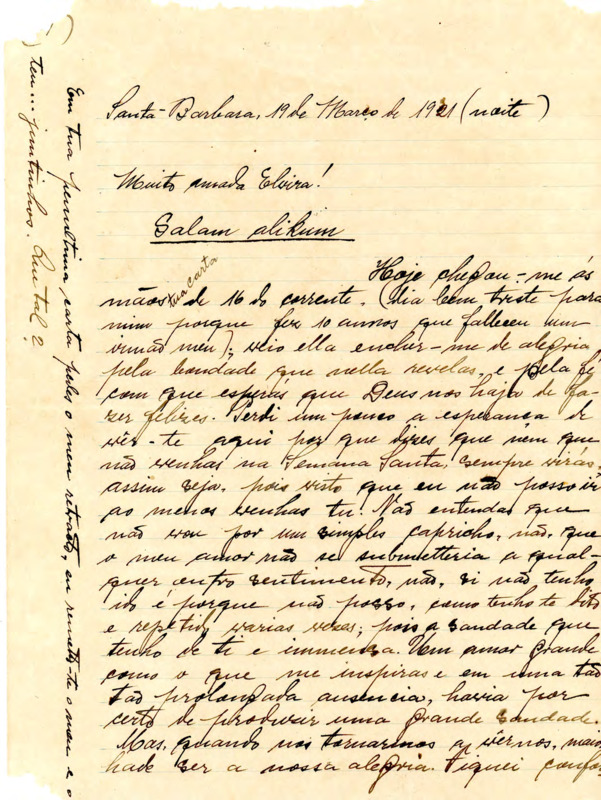 Santa Barbara, 19 de Março de 1921 (noite)
Muito amada Elvira!
Salam alikum
Hoje chegou-me ás
mãos tua carta de 16 do corrente. (dia bem triste para
mim porque fez 10 annos que falleceu um
irmão meu), veio ella encher-me de alegria
pela bondade que nella revelas, e pela fé
com que esperas que Deus nos haja de fa-
zer felizes. Perdi um pouco a esperança de
vêr-te aqui por que dizes que nem que
não venhas na Semana Santa, sempre virás,
assim seja, pois visto que eu não posso ir
ao menos venhas tu! Não entendas que
não vou por um simples capricho, não, que
o meu amor não se submetteria a qual-
quer outro sentimento, não, si não tenho
ido é porque não posso, como tenho te dito
e repetido varias vezes; pois a saudade que
tenho de ti e immensa. Um amor grande
como o que me inspiras e em uma tão
tão prolongada ausencia, havia por
certo de produzir uma grande saudade.
Mas, quando nos tornarmos a vêrnos, maior
hade ser a nossa alegria. Fiquei confor-
Em tua penultima carta pedes o meu retrato, eu remeto-te o meu e o
teu... juntinhos. Que tal?